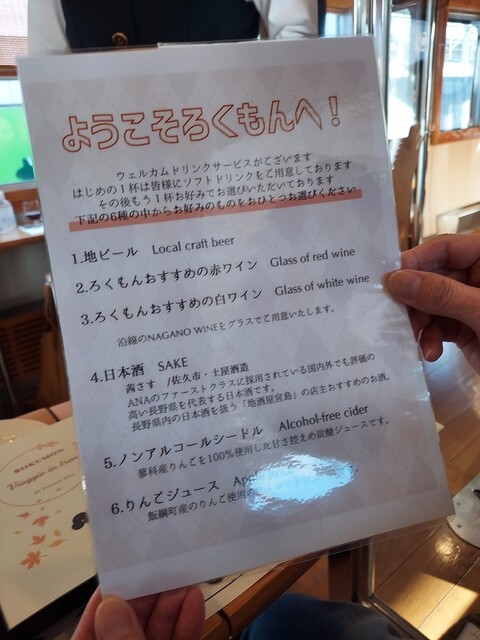 ようこそろくもんへ！
ウェルカムドリンクサービスがございます
はじめの1杯は皆様にソフトドリンクをご用意しております
その後もう1杯お好みでお選びいただいております
下記の6種の中からお好みのものをおひとつお選びください
1.地ビール　Local craft beer
2.ろくもんおすすめの赤ワイン　Glass of red wine
3.ろくもんおすすめの白ワイン　Glass of white wine
沿線のNAGANO WINEをグラスでご用意いたします。
4.日本酒　SAKE
茜さす　/佐久市・土屋酒造
ANAのファーストクラスに採用されている国内外でも評価の
高い長野県を代表する日本酒です。
長野県内の日本酒を扱う「地酒屋宮島」の店主おすすめのお酒。
5.ノンアルコールシードル　Alcohol-free cider
蓼科産りんごを100%使用した甘さ控えめ炭酸ジュースです。
6.りんごジュース
飯綱町産のりんご使用の
ROKUMON
Viaggio in